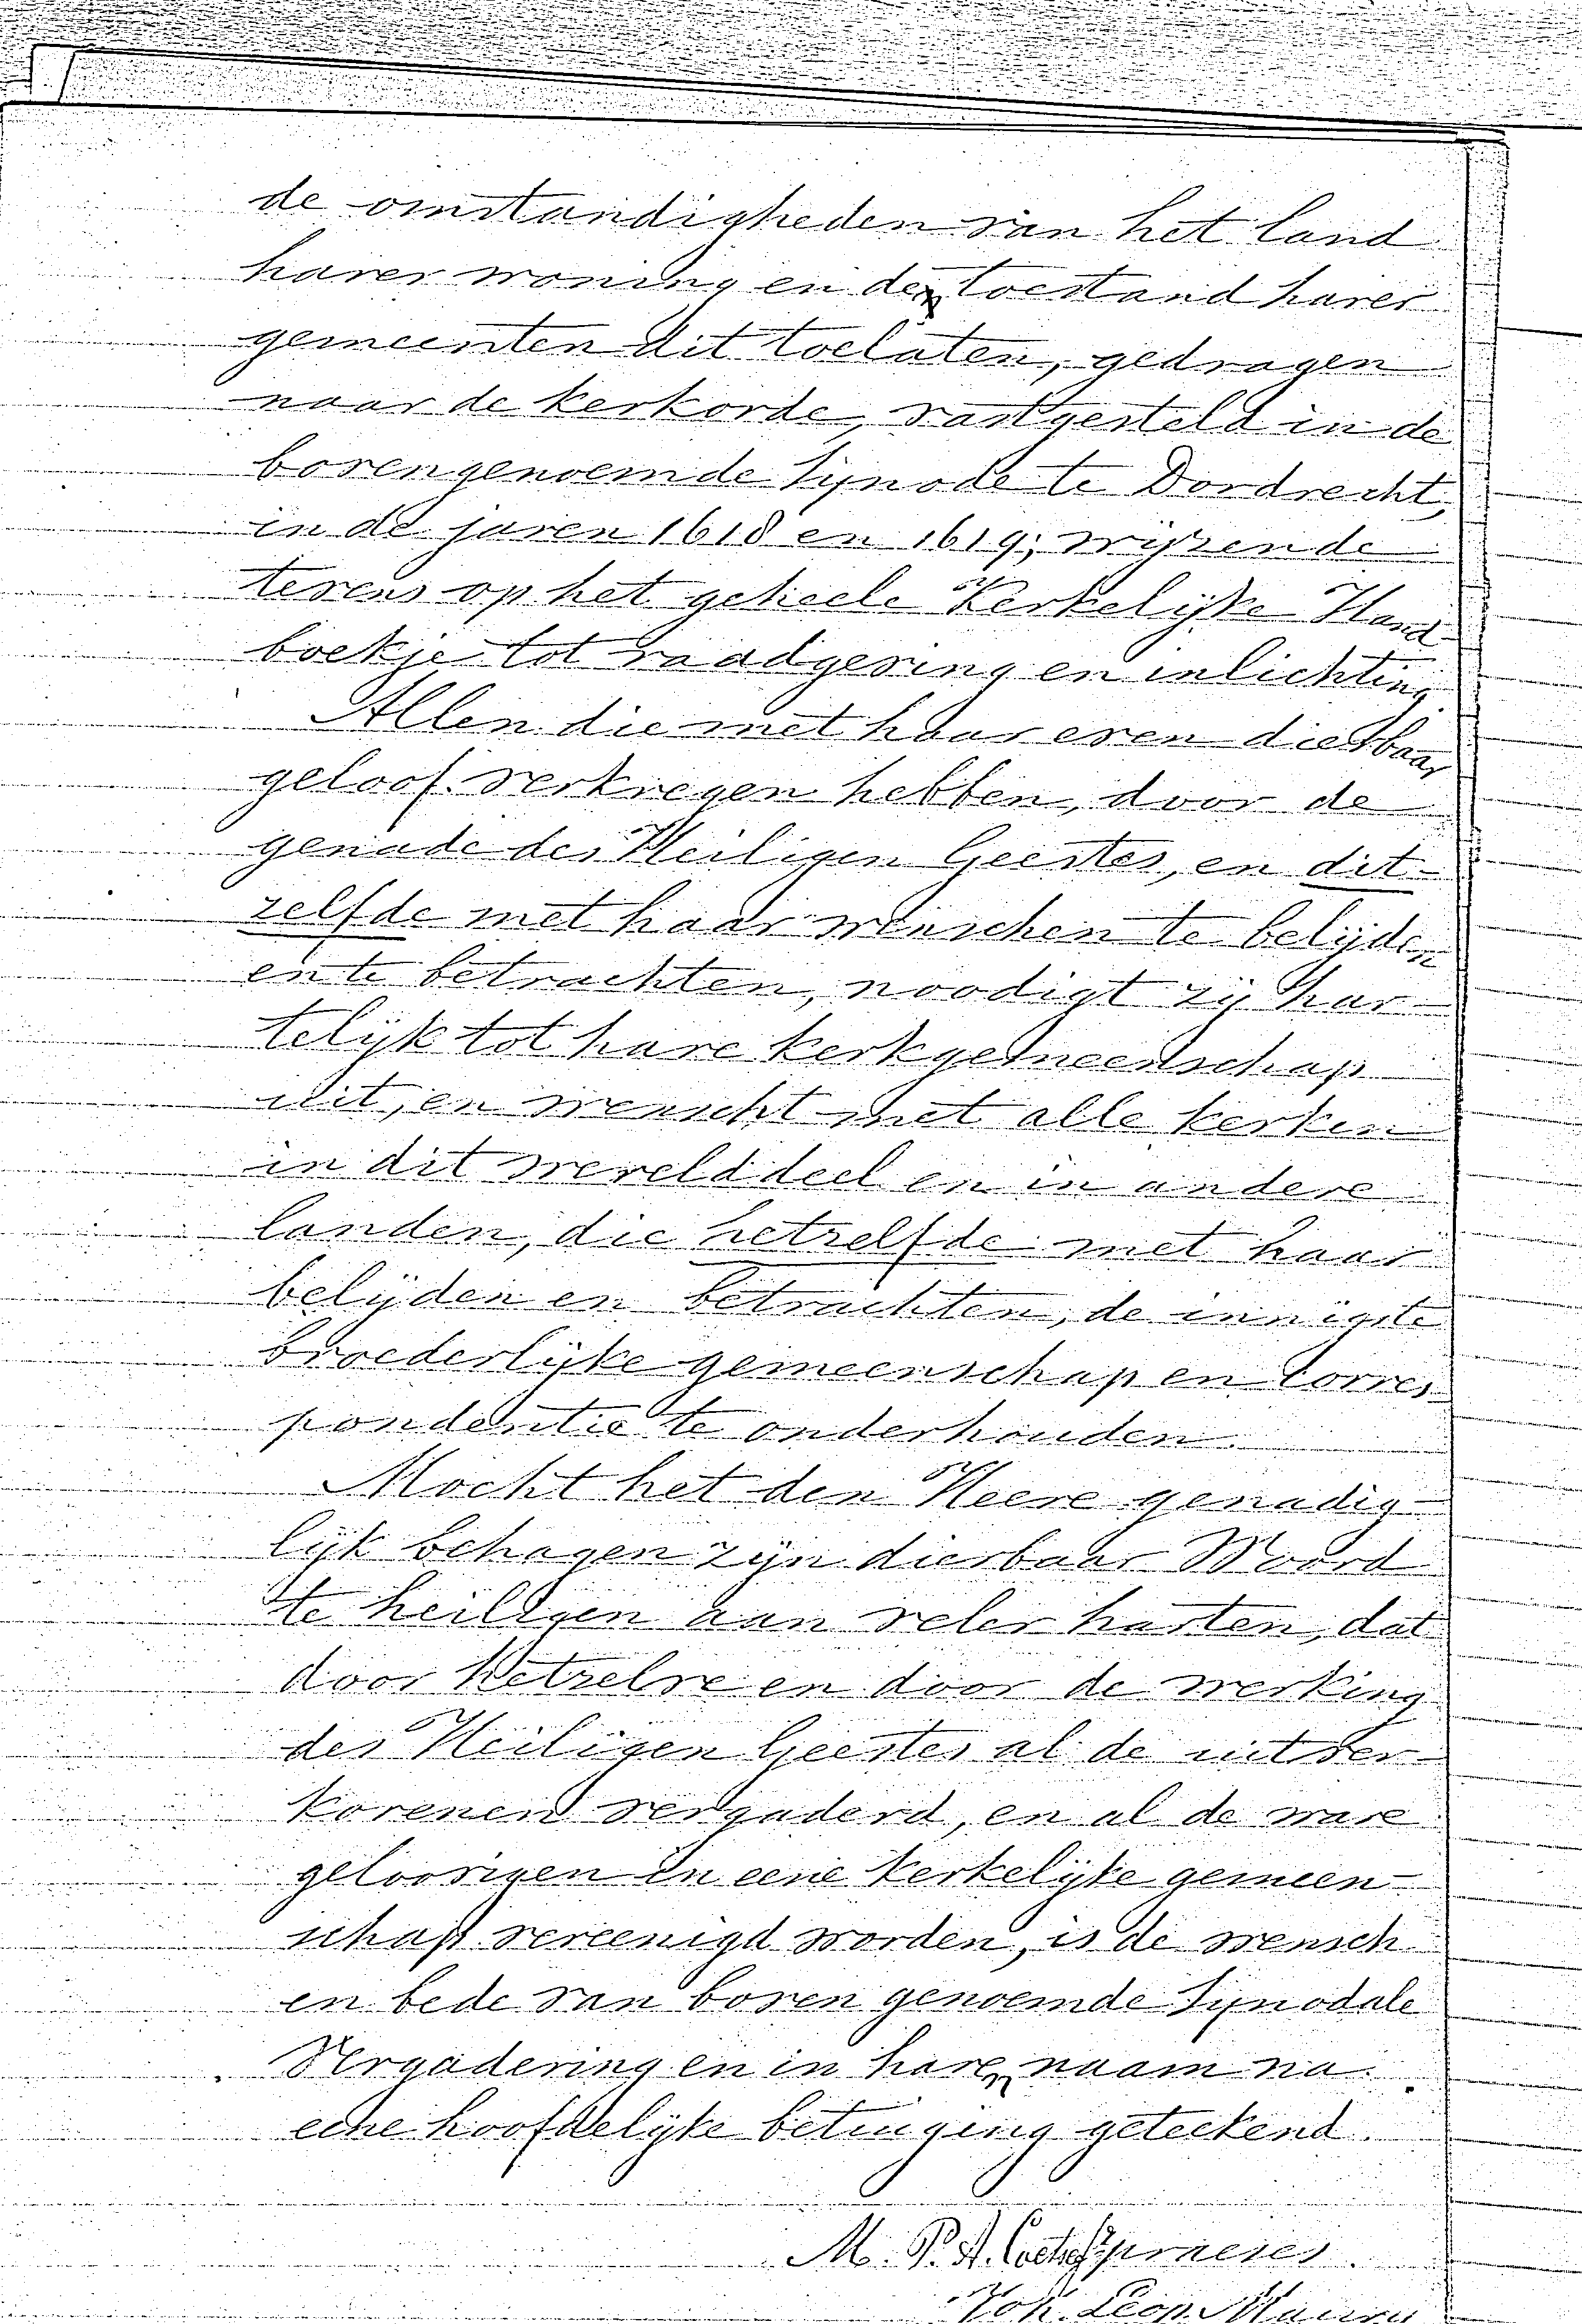 de omstandigheden van het land
harer woning en de toestand harer
gemeenten dit toelaten, gedragen
naar de kerkorde, vastgesteld in de
bovengenoemde Synode te Dordrecht,
in de jaren 1618 en 1619; wijzende
tevens op het geheele Kerkelijke Hand-
boekje tot raadgeving en inlichting.
Allen die met haar even dierbaar
geloof verkregen hebben, door de
genade des Heiligen Geestes, en dit-
zelfde met haar wenschen te belijden
en te betrachten, noodigt zij har-
telijk tot hare kerkgemeenschap
uit, en wenscht met alle kerken
in dit werelddeel en in andere
landen, die hetzelfde met haar
belijden en betrachten, de innigste
broederlijke gemeenschap en corres-
pondentie te onderhouden.
Mocht het den Heere genadig-
lijk behagen zijn dierbaar Woord
te heiligen aan veler harten, dat
door hetzelve en door de werking
des Heiligen Geestes al de uitver-
korenen vergaderd, en al de ware
geloovigen in eene kerkelijke gemeen-
schap vereenigd worden, is de wensch
en bede van boven genoemde Synodale
Vergadering en in hare naam na
eene hoofdelijke betuiging geteekend.
M. P. A. Coetsee praeses.
Joh. Leop. Maury